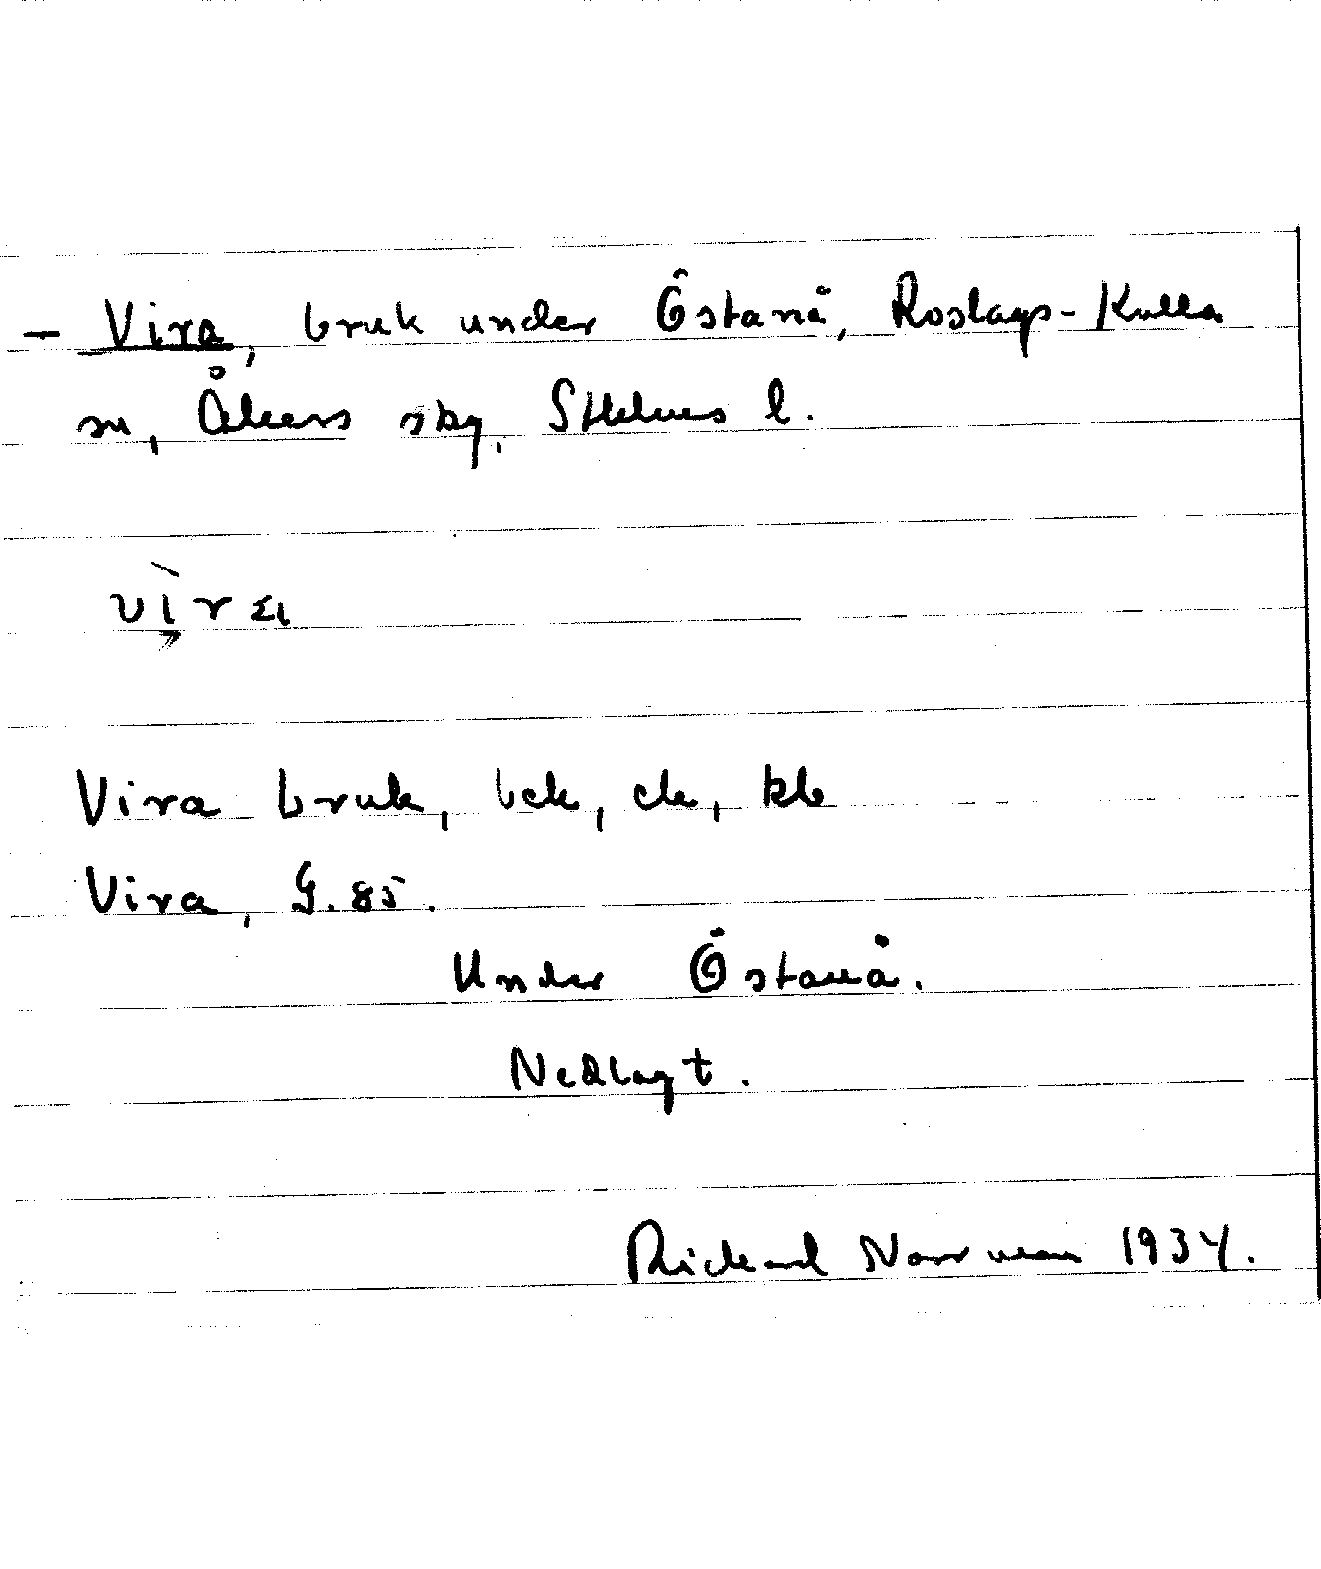 - Vira, bruk under Östanå, Roslags-Kulla
sn, Åkers skg, Sthlms l.
vìra
Vira bruk, bek, ek, kb
Vira, G. 85.
Under Östanå.
Nedlagt.
Rickard Norrman 1934.